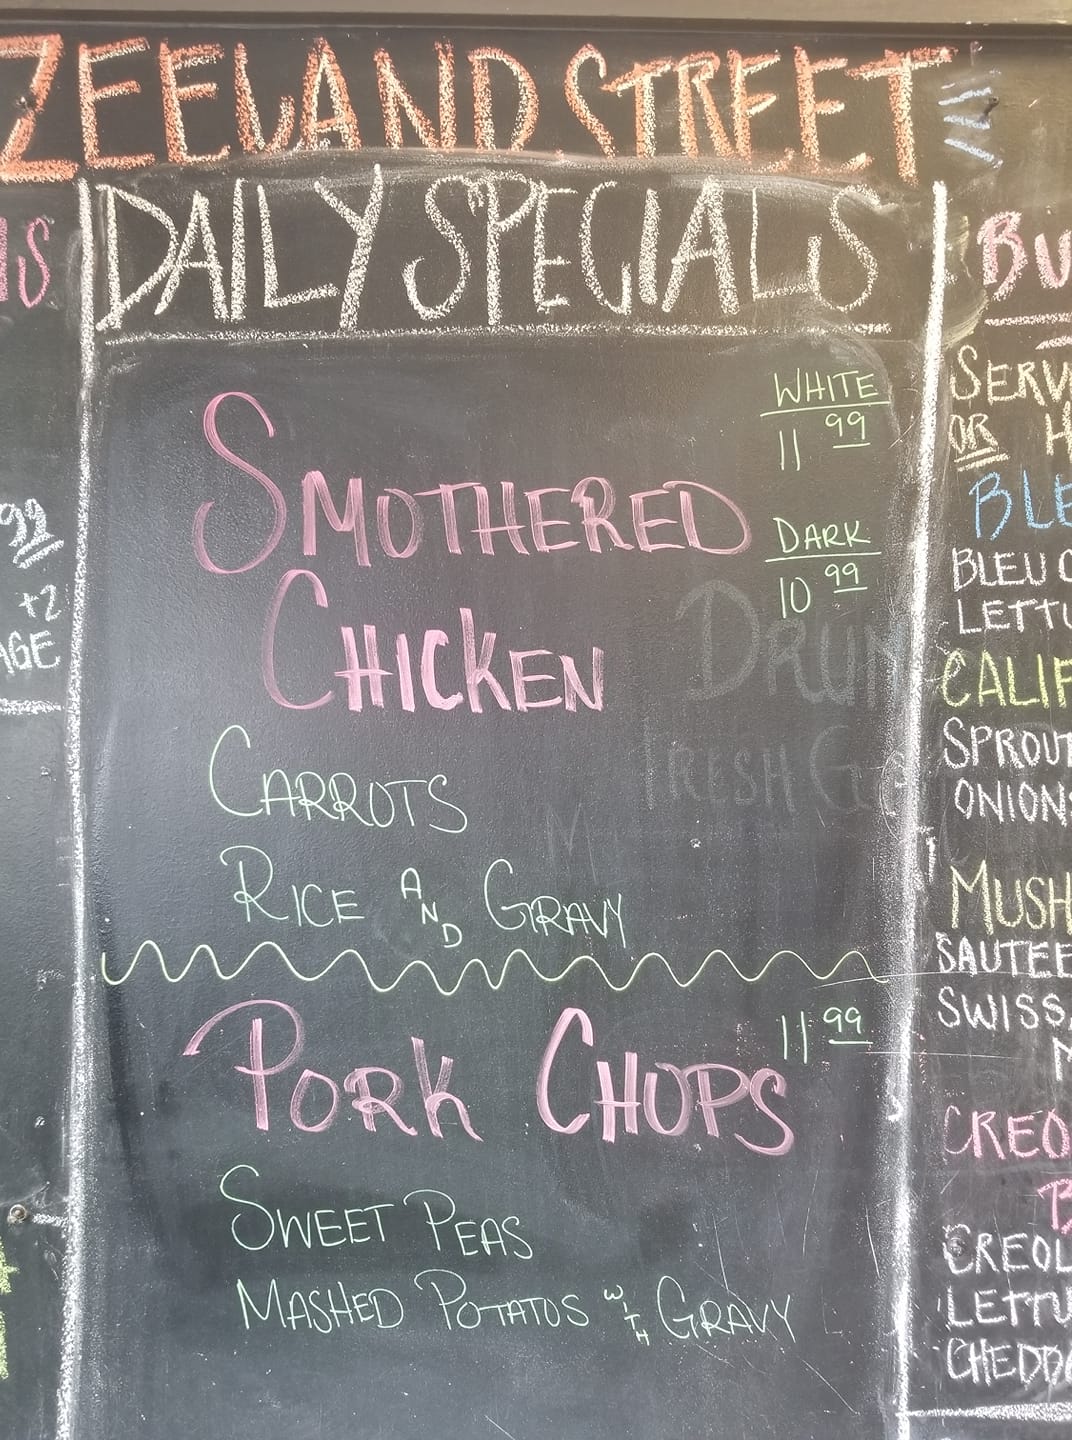 ZEELAND STREET
DAILY SPECIALS
SMOTHERED
CHICKEN
WHITE
11 99
DARK
10 99
CARROTS
RICE AND GRAVY
PORK CHOPS
11 99
SWEET PEAS
MASHED POTATOS WITH GRAVY
99
+2
AGE
BU
SERV
OR H
BLE
BLEU C
LETTU
CALIF
SPROUT
ONIONS
MUSH
SAUTEE
SWISS,
CREO
B
CREOL
LETTU
CHEDD